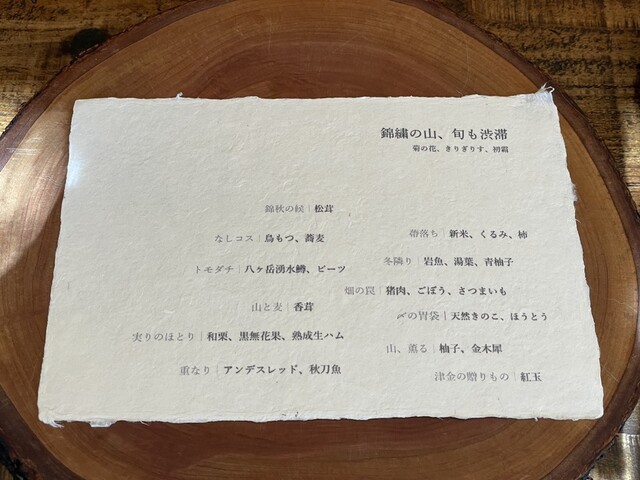 錦繍の山、旬も渋滞
菊の花、きりぎりす、初霜
錦秋の候｜松茸
なしコス｜鳥もつ、蕎麦
トモダチ｜八ヶ岳湧水鱒、ビーツ
山と麦｜香茸
実りのほとり｜和栗、黒無花果、熟成生ハム
重なり｜アンデスレッド、秋刀魚
帯落ち｜新米、くるみ、柿
冬隣り｜岩魚、湯葉、青柚子
畑の罠｜猪肉、ごぼう、さつまいも
〆の胃袋｜天然きのこ、ほうとう
山、薫る｜柚子、金木犀
津金の贈りもの｜紅玉